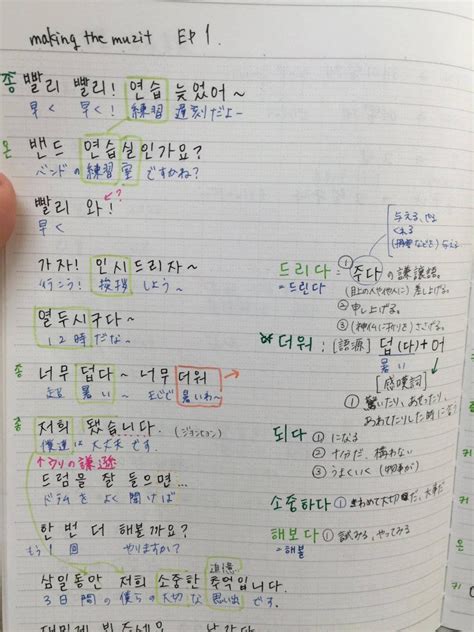 making the muzit EP 1.
종 빨리 빨리! 연습 늦었어~
早く 早く! 練習 遅刻だよー
은 밴드 연습실인가요?
バンドの練習室ですかね?
?
빨리 와!
早く
가자! 인사드리자~
行こう! 挨拶 しよう~
열두시구다~
12時だな~
종 너무 덥다~ 너무 더워
暑い~ 暑いわ~
종 저희 됐습니다. (ジョンヒョン)
僕達は大丈夫です。
↑ウリの謙遜
드럼을 잘 들으면...
ドラムをよく聞けば
한 번 더 해볼까요?
もう1回 やりますか?
追憶
삼일동안 저희 소중한 추억입니다.
3日間の僕らの大切な思い出です。
与える、やる
くれる
など)を与える
드리다 = ① 주다の謙譲語。
=드린다
(目上の人や他人に)差し上げる。
② 申し上げる。
③ (神仏に祈りを)ささげる。
*더워 : [語源] 덥(다)+어
暑い
[感嘆詞]
① 驚いたり、あせったり、
あわれてたりした時に
되다 ① になる
② 十分だ、構わない
③ うまくいく (物事が)
소중하다 ① きわめて大切だ、大事だ
해보다 ① 試みる、やってみる
=해볼